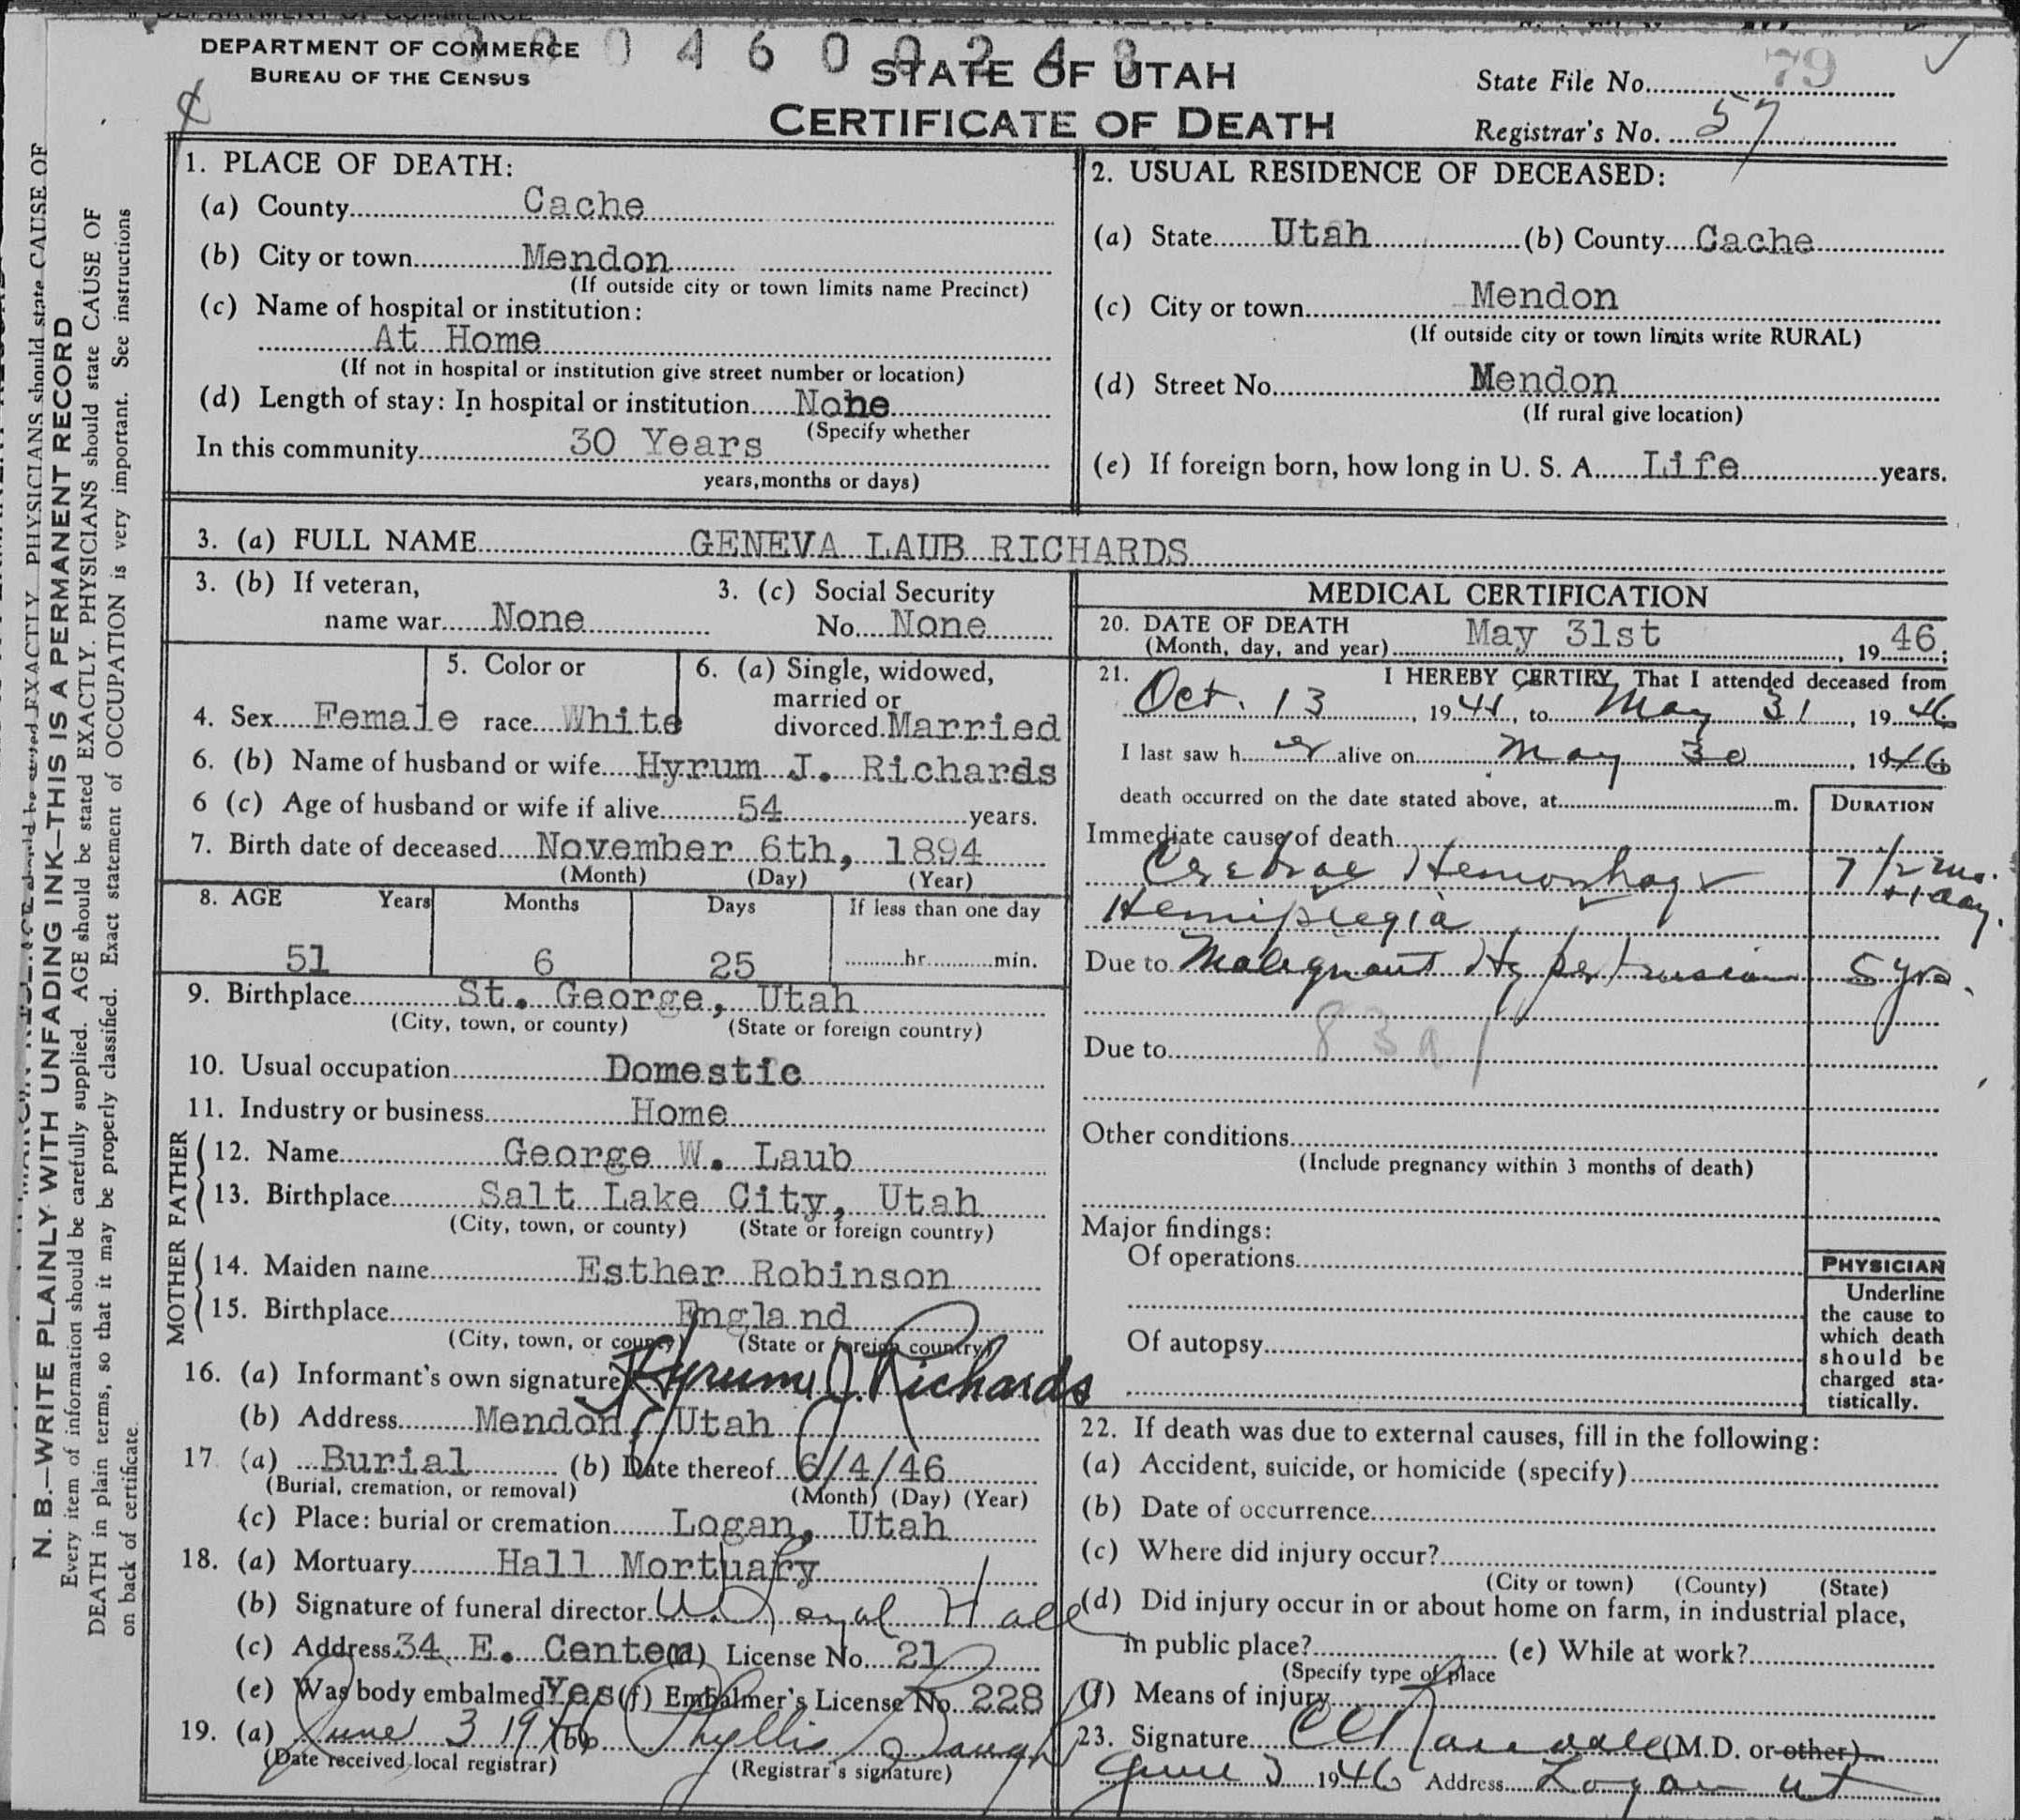 DEPARTMENT OF COMMERCE
BUREAU OF THE CENSUS
STATE OF UTAH
CERTIFICATE OF DEATH
State File No. 79
Registrar's No. 57
1. PLACE OF DEATH:
(a) County Cache
(b) City or town Mendon
(If outside city or town limits name Precinct)
(c) Name of hospital or institution:
At Home
(If not in hospital or institution give street number or location)
(d) Length of stay: In hospital or institution None
(Specify whether
In this community 30 Years
years, months or days)
2. USUAL RESIDENCE OF DECEASED:
(a) State Utah (b) County Cache
(c) City or town Mendon
(If outside city or town limits write RURAL)
(d) Street No. Mendon
(If rural give location)
(e) If foreign born, how long in U. S. A. Life years.
3. (a) FULL NAME GENEVA LAUB RICHARDS
3. (b) If veteran,
name war None
3. (c) Social Security
No. None
4. Sex Female
5. Color or
race White
6. (a) Single, widowed,
married or
divorced. Married
6. (b) Name of husband or wife Hyrum J. Richards
6 (c) Age of husband or wife if alive 54 years.
7. Birth date of deceased November 6th, 1894
(Month) (Day) (Year)
8. AGE Years Months Days If less than one day
51 6 25 hr. min.
9. Birthplace St. George, Utah
(City, town, or county) (State or foreign country)
10. Usual occupation Domestic
11. Industry or business Home
FATHER
12. Name George W. Laub
13. Birthplace Salt Lake City, Utah
(City, town, or county) (State or foreign country)
MOTHER
14. Maiden name Esther Robinson
15. Birthplace England
(City, town, or county) (State or foreign country)
16. (a) Informant's own signature Hyrum J. Richards
(b) Address Mendon, Utah
17 (a) Burial (b) Date thereof 6/4/46
(Burial, cremation, or removal) (Month) (Day) (Year)
(c) Place: burial or cremation Logan, Utah
18. (a) Mortuary Hall Mortuary
(b) Signature of funeral director W. Loyal Hall
(c) Address 34 E. Center (d) License No. 21
(e) Was body embalmed Yes (f) Embalmer's License No. 228
19. (a) June 3 1946 (b) Phyllis
(Date received local registrar) (Registrar's signature)
MEDICAL CERTIFICATION
20. DATE OF DEATH
(Month, day, and year) May 31st, 1946;
21. I HEREBY CERTIFY, That I attended deceased from
Oct. 13, 19 , to May 31, 1946
I last saw her alive on May 30, 1946
death occurred on the date stated above, at m.
DURATION
Immediate cause of death
Cerebral Hemorrhage 7 1/2 mo. + 1 day.
Hemiplegia
Due to Malignant Hypertension 5 yrs.
83a
Due to
Other conditions
(Include pregnancy within 3 months of death)
Major findings:
Of operations
Of autopsy
PHYSICIAN
Underline
the cause to
which death
should be
charged sta-
tistically.
22. If death was due to external causes, fill in the following:
(a) Accident, suicide, or homicide (specify)
(b) Date of occurrence
(c) Where did injury occur?
(City or town) (County) (State)
(d) Did injury occur in or about home on farm, in industrial place,
in public place? (e) While at work?
(Specify type of place
(f) Means of injury
23. Signature (M.D. or other)
June 3 1946 Address Logan Ut
N. B.—WRITE PLAINLY WITH UNFADING INK—THIS IS A PERMANENT RECORD
Every item of information should be carefully supplied. AGE should be stated EXACTLY. PHYSICIANS should state CAUSE OF
DEATH in plain terms, so that it may be properly classified. Exact statement of OCCUPATION is very important. See instructions
on back of certificate.